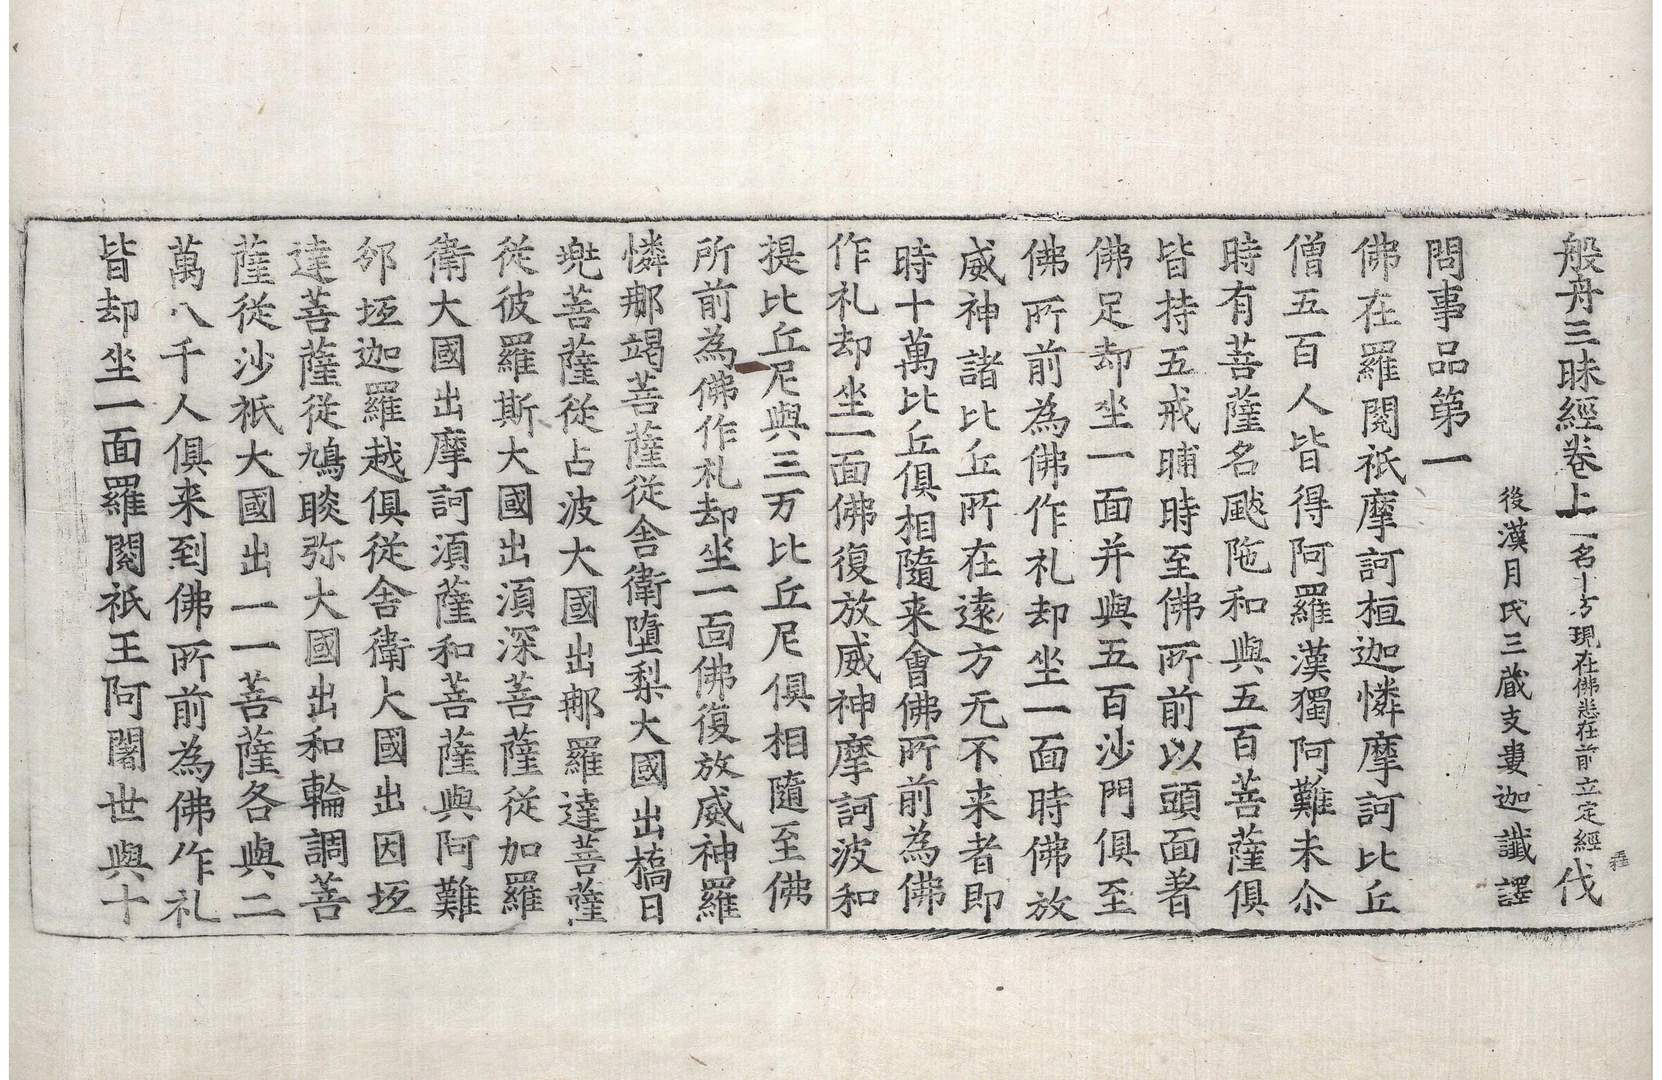 般舟三昧經卷上一名十方現在佛悉在前立定經 伐
後漢月氏三藏支婁迦讖譯
問事品第一
佛在羅閱祇摩訶桓迦憐摩訶比丘
僧五百人皆得阿羅漢獨阿難未尒
時有菩薩名颰陁和與五百菩薩俱
皆持五戒晡時至佛所前以頭面著
佛足却坐一面并與五百沙門俱至
佛所前為佛作礼却坐一面時佛放
威神諸比丘所在遠方无不来者即
時十萬比丘俱相隨来會佛所前為佛
作礼却坐一面佛復放威神摩訶波和
提比丘尼與三万比丘尼俱相隨至佛
所前為佛作礼却坐一面佛復放威神羅
憐那竭菩薩從舍衛墮梨大國出橋日
兠菩薩從占波大國出那羅達菩薩
從彼羅斯大國出湏深菩薩從加羅
衛大國出摩訶湏薩和菩薩與阿難
邠坻迦羅越俱從舍衛大國出因坻
達菩薩從鳩睒弥大國出和輪調菩
薩從沙祇大國出一一菩薩各與二
萬八千人俱来到佛所前為佛作礼
皆却坐一面羅閱祇王阿闍世與十